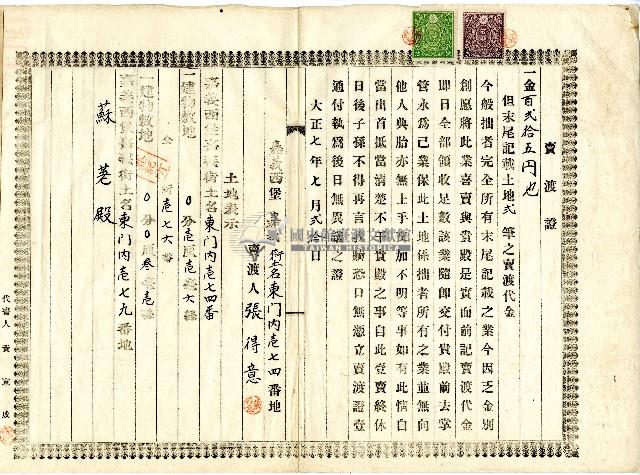 賣渡證
一金百貳拾五円也
但末尾記載土地弍筆之賣渡代金
今般拙者完全所有末尾記載之業今因乏金別
創愿將此業喜賣與貴殿是實而前記賣渡代金
即日全部領收足數該業隨即交付貴殿前去掌
管永為己業保此土地係拙者所有之業並無向
他人典胎亦無上手交加不明等事如有此情自
當出首抵當清楚不干貴殿之事自此壹賣終休
日後子孫不得再言找贖恐口無憑立賣渡證壹
通付執為後日無異議之證
大正七年七月弍拾日
嘉義西堡嘉義街土名東門内壱七四番地
賣渡人 張得意
土地表示
嘉義西堡嘉義街土名東門内壱七四番
一建物敷地
仝所壱七六番
一建物敷地
嘉義西堡嘉義街土名東門内壱七九番地
殿
代書人 黄宜成
國史館臺灣文獻館
TAIWAN HISTORICA